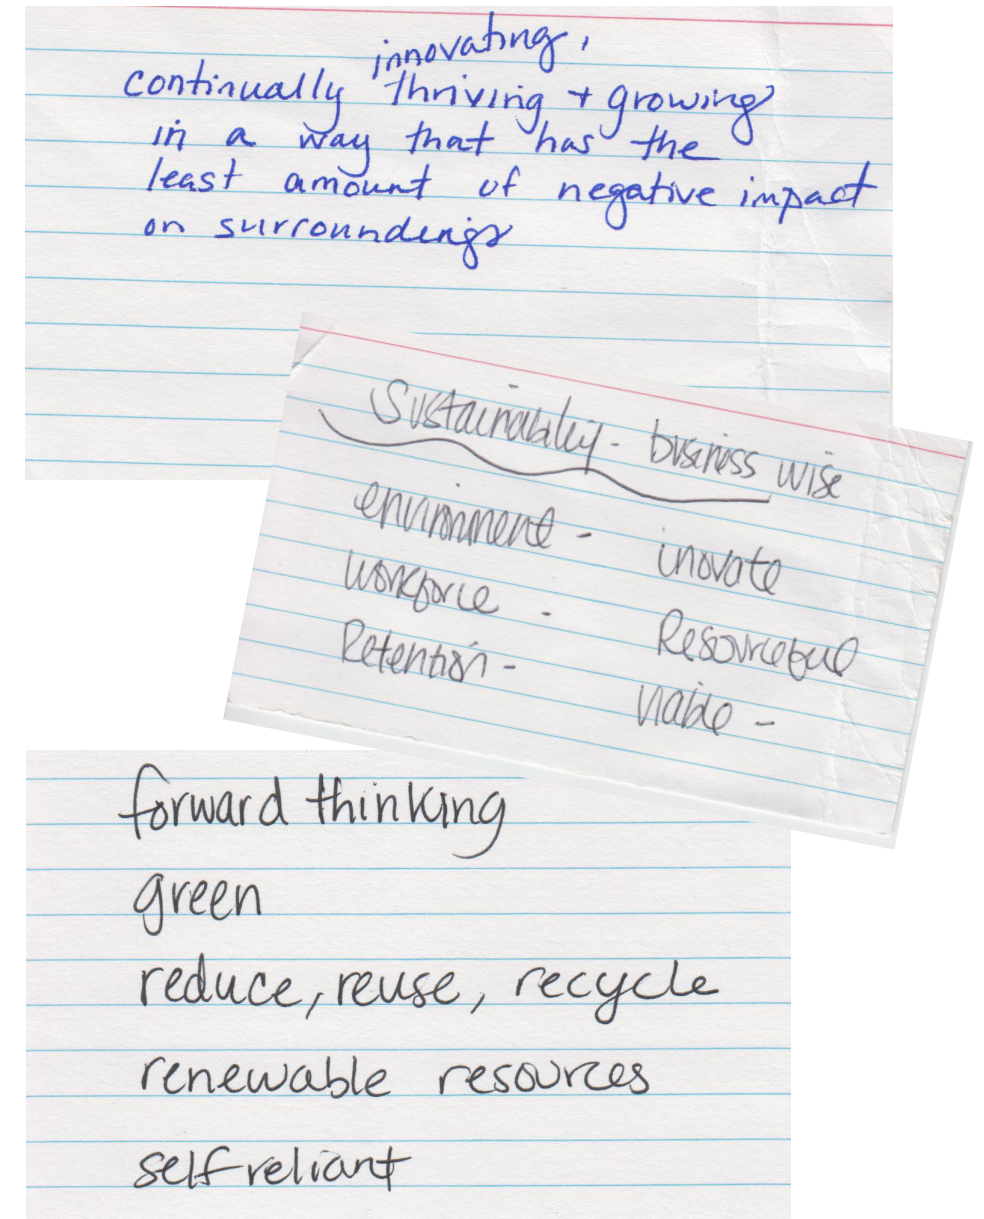 innovating,
continually thriving + growing
in a way that has the
least amount of negative impact
on surroundings
Sustainability - business wise
environment - inovate
workforce - Resourceful
Retention - viable -
forward thinking
green
reduce, reuse, recycle
renewable resources
self reliant